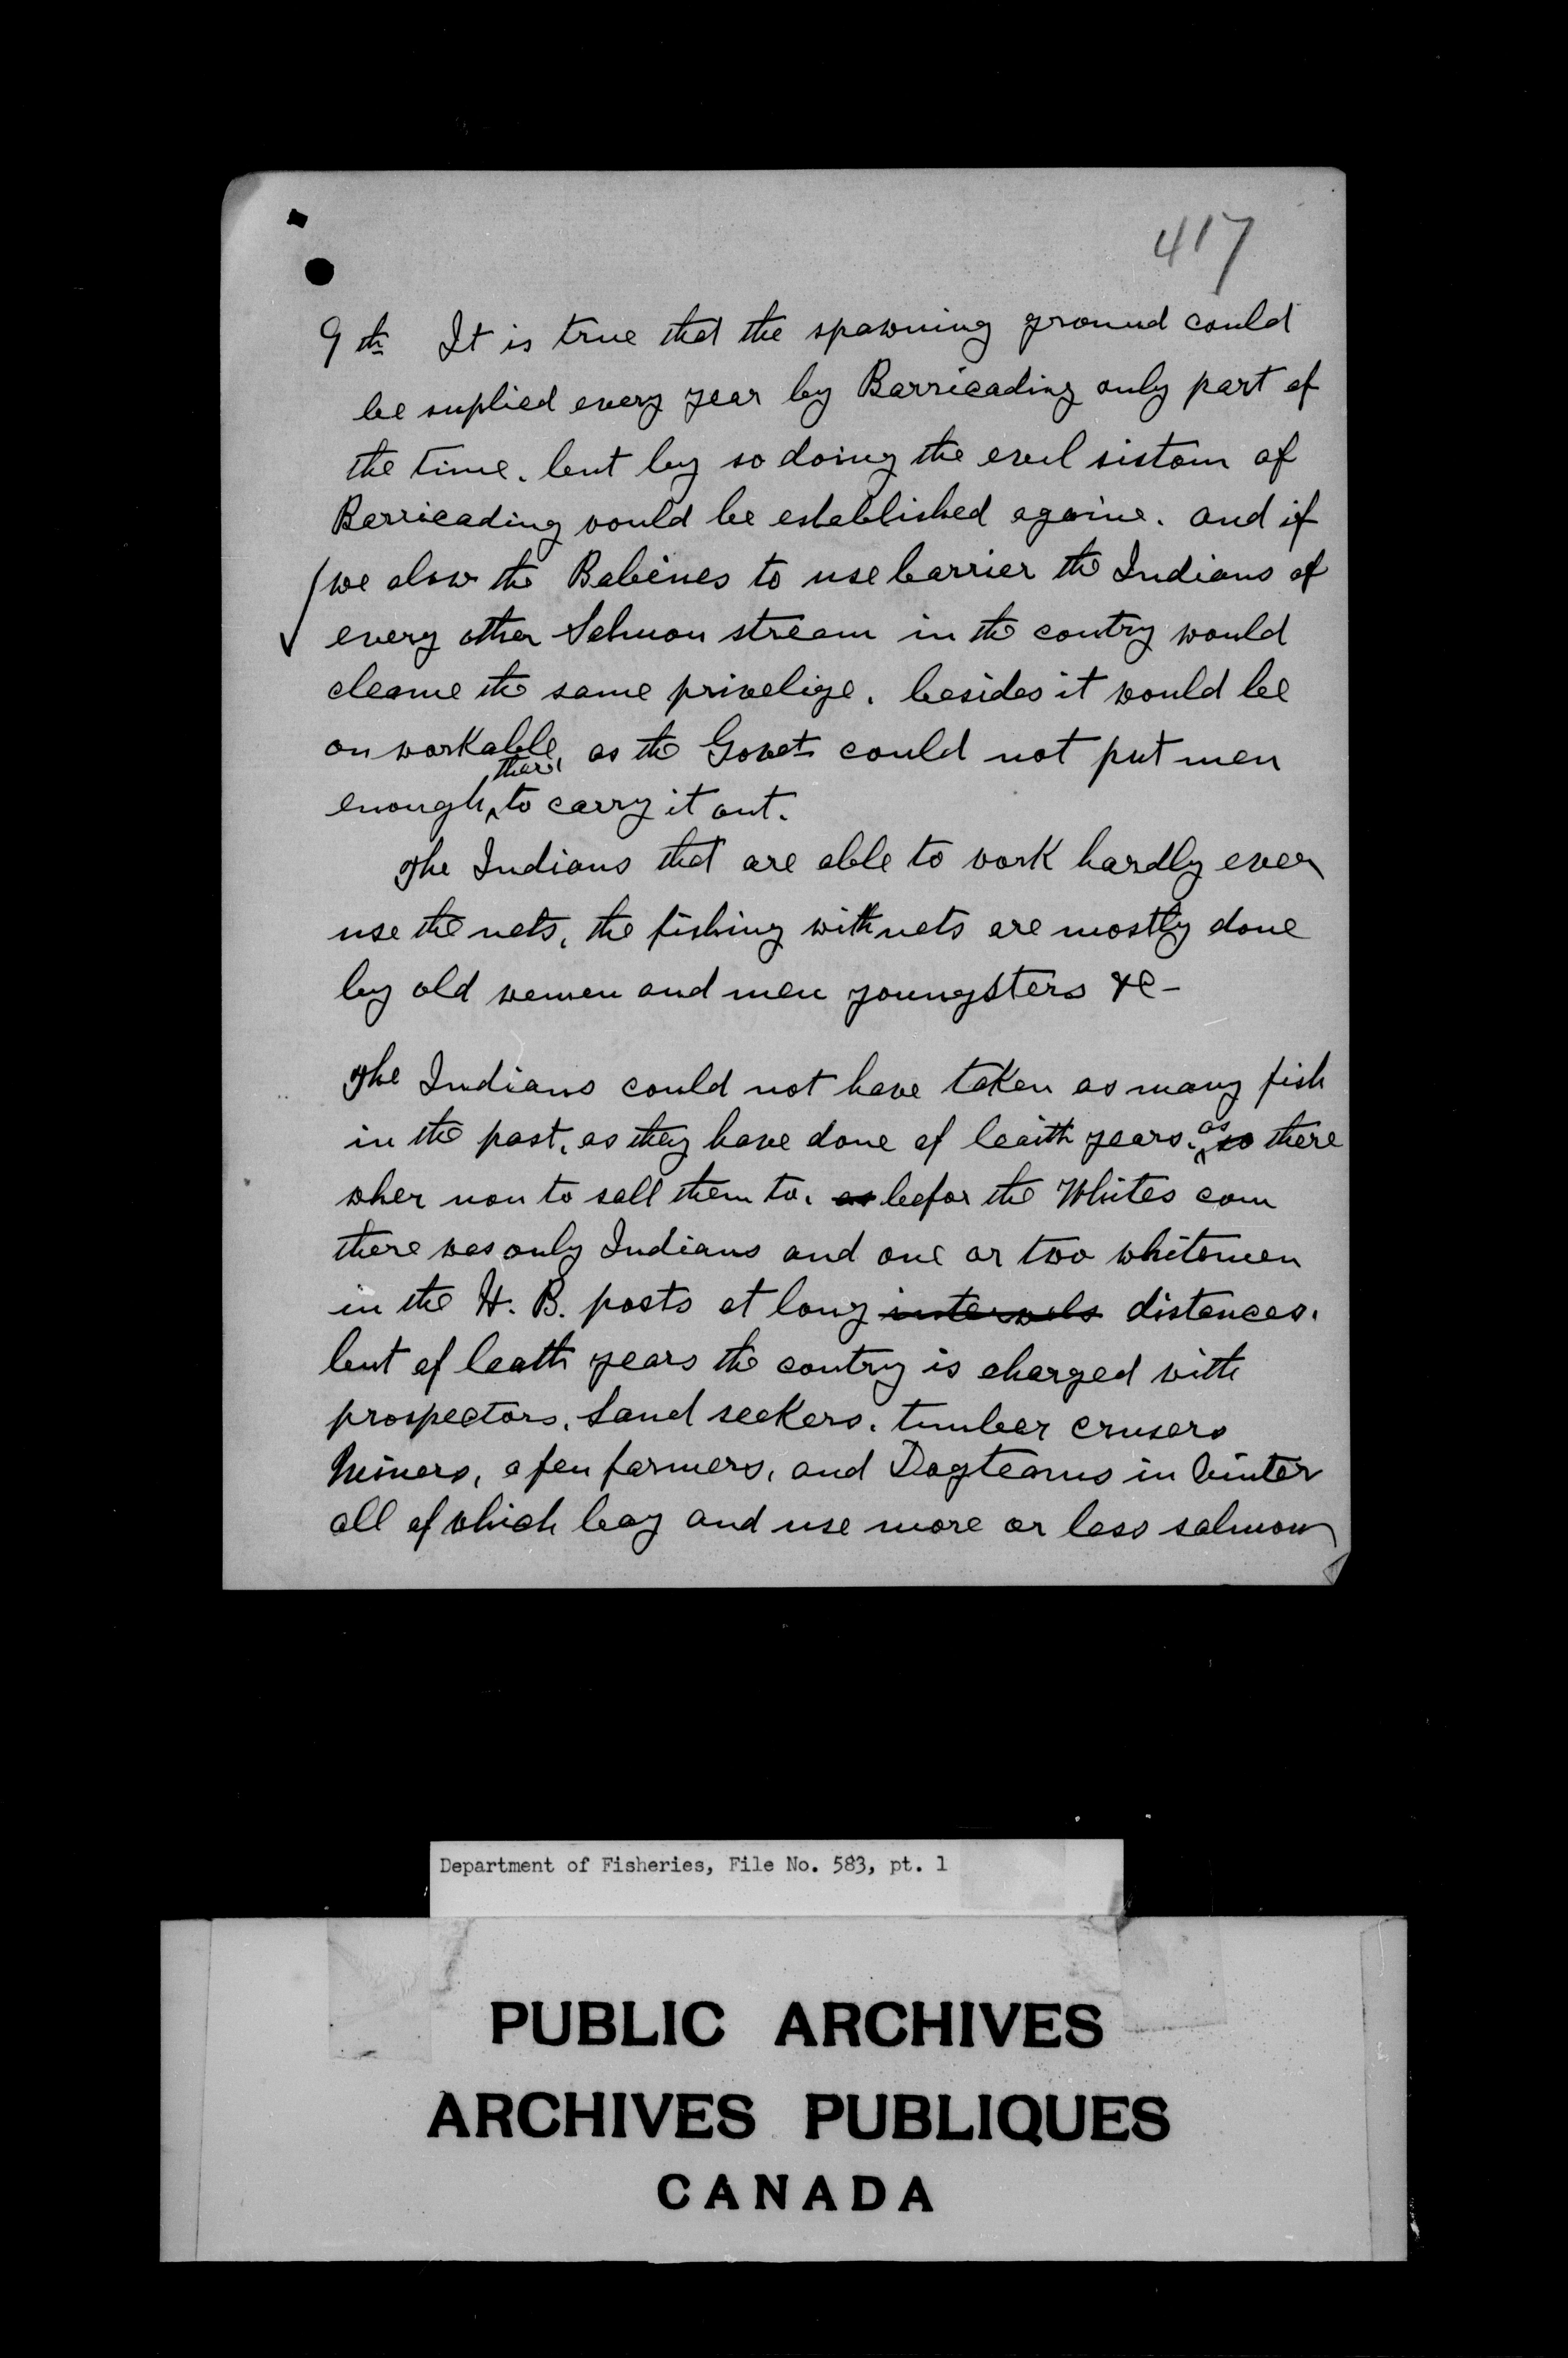 417
9th It is true that the spawning ground could
be suplied every year by Barricading only part of
the time. but by so doing the evel sistom of
Barricading would be established againe. and if
we alow the Babines to use barrier the Indians of
every other Salmon stream in the contry would
cleame the same privelige. besides it would be
on workable, as the Govet could not put men
there
enough to carry it out.
The Indians that are able to work hardly ever
use the nets, the fishing with nets are mostly done
by old wemen and men youngsters &c-
The Indians could not have taken as many fish
in the past, as they have done of leaith years. as so there
wher non to sell them to. as befor the Whites com
there was only Indians and one or two whitemen
in the H. B. posts at long intervals distances.
but of leath years the contry is charged with
prospectors, Land seekers. timber crusers
Miners, a few farmers, and Dogteams in Winter
all of which bay and use more or less salmon
Department of Fisheries, File No. 583, pt. 1
PUBLIC ARCHIVES
ARCHIVES PUBLIQUES
CANADA